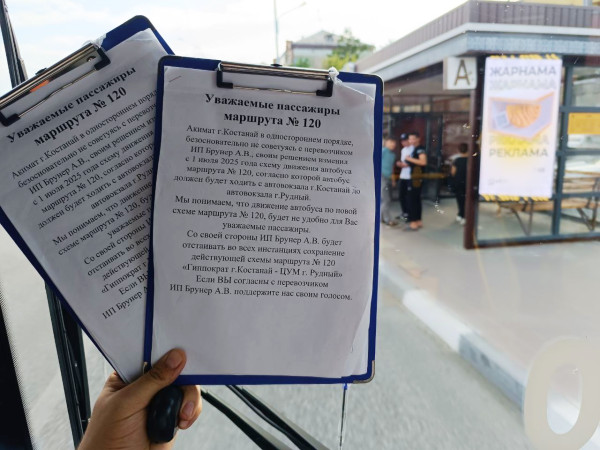 Уважаемые пассажиры
маршрута № 120
Акимат г.Костанай в одностороннем порядке,
безосновательно не советуясь с перевозчиком
ИП Брунер А.В., своим решением изменил
с 1 июля 2025 года схему движения автобуса
маршрута № 120, согласно которой автобус
должен будет ходить с автовокзала г.Костанай до
автовокзала г.Рудный.
Мы понимаем, что движение автобуса по новой
схеме маршрута № 120, будет не удобно для Вас
уважаемые пассажиры.
Со своей стороны ИП Брунер А.В. будет
отстаивать во всех инстанциях сохранение
действующей схемы маршрута № 120
«Гиппократ г.Костанай - ЦУМ г. Рудный»
Если ВЫ согласны с перевозчиком
ИП Брунер А.В. поддержите нас своим голосом.
Уважаемые пассажиры
маршрута № 120
Акимат г.Костанай в одностороннем порядке,
безосновательно не советуясь с перевозчиком
ИП Брунер А.В., своим решением
с 1 июля 2025 года схему движения
маршрута № 120, согласно которой
должен будет ходить с автовокзала
автовокзала г.Рудный
Мы понимаем, что движение
схеме маршрута № 120, будет
уважаемые
Со своей стороны
отстаивать во всех
действующей
«Гиппократ г.
Если
ИП Брунер А.В.
А
ЖАРНАМА
ЖАРМАМА
РЕКЛАМА
0